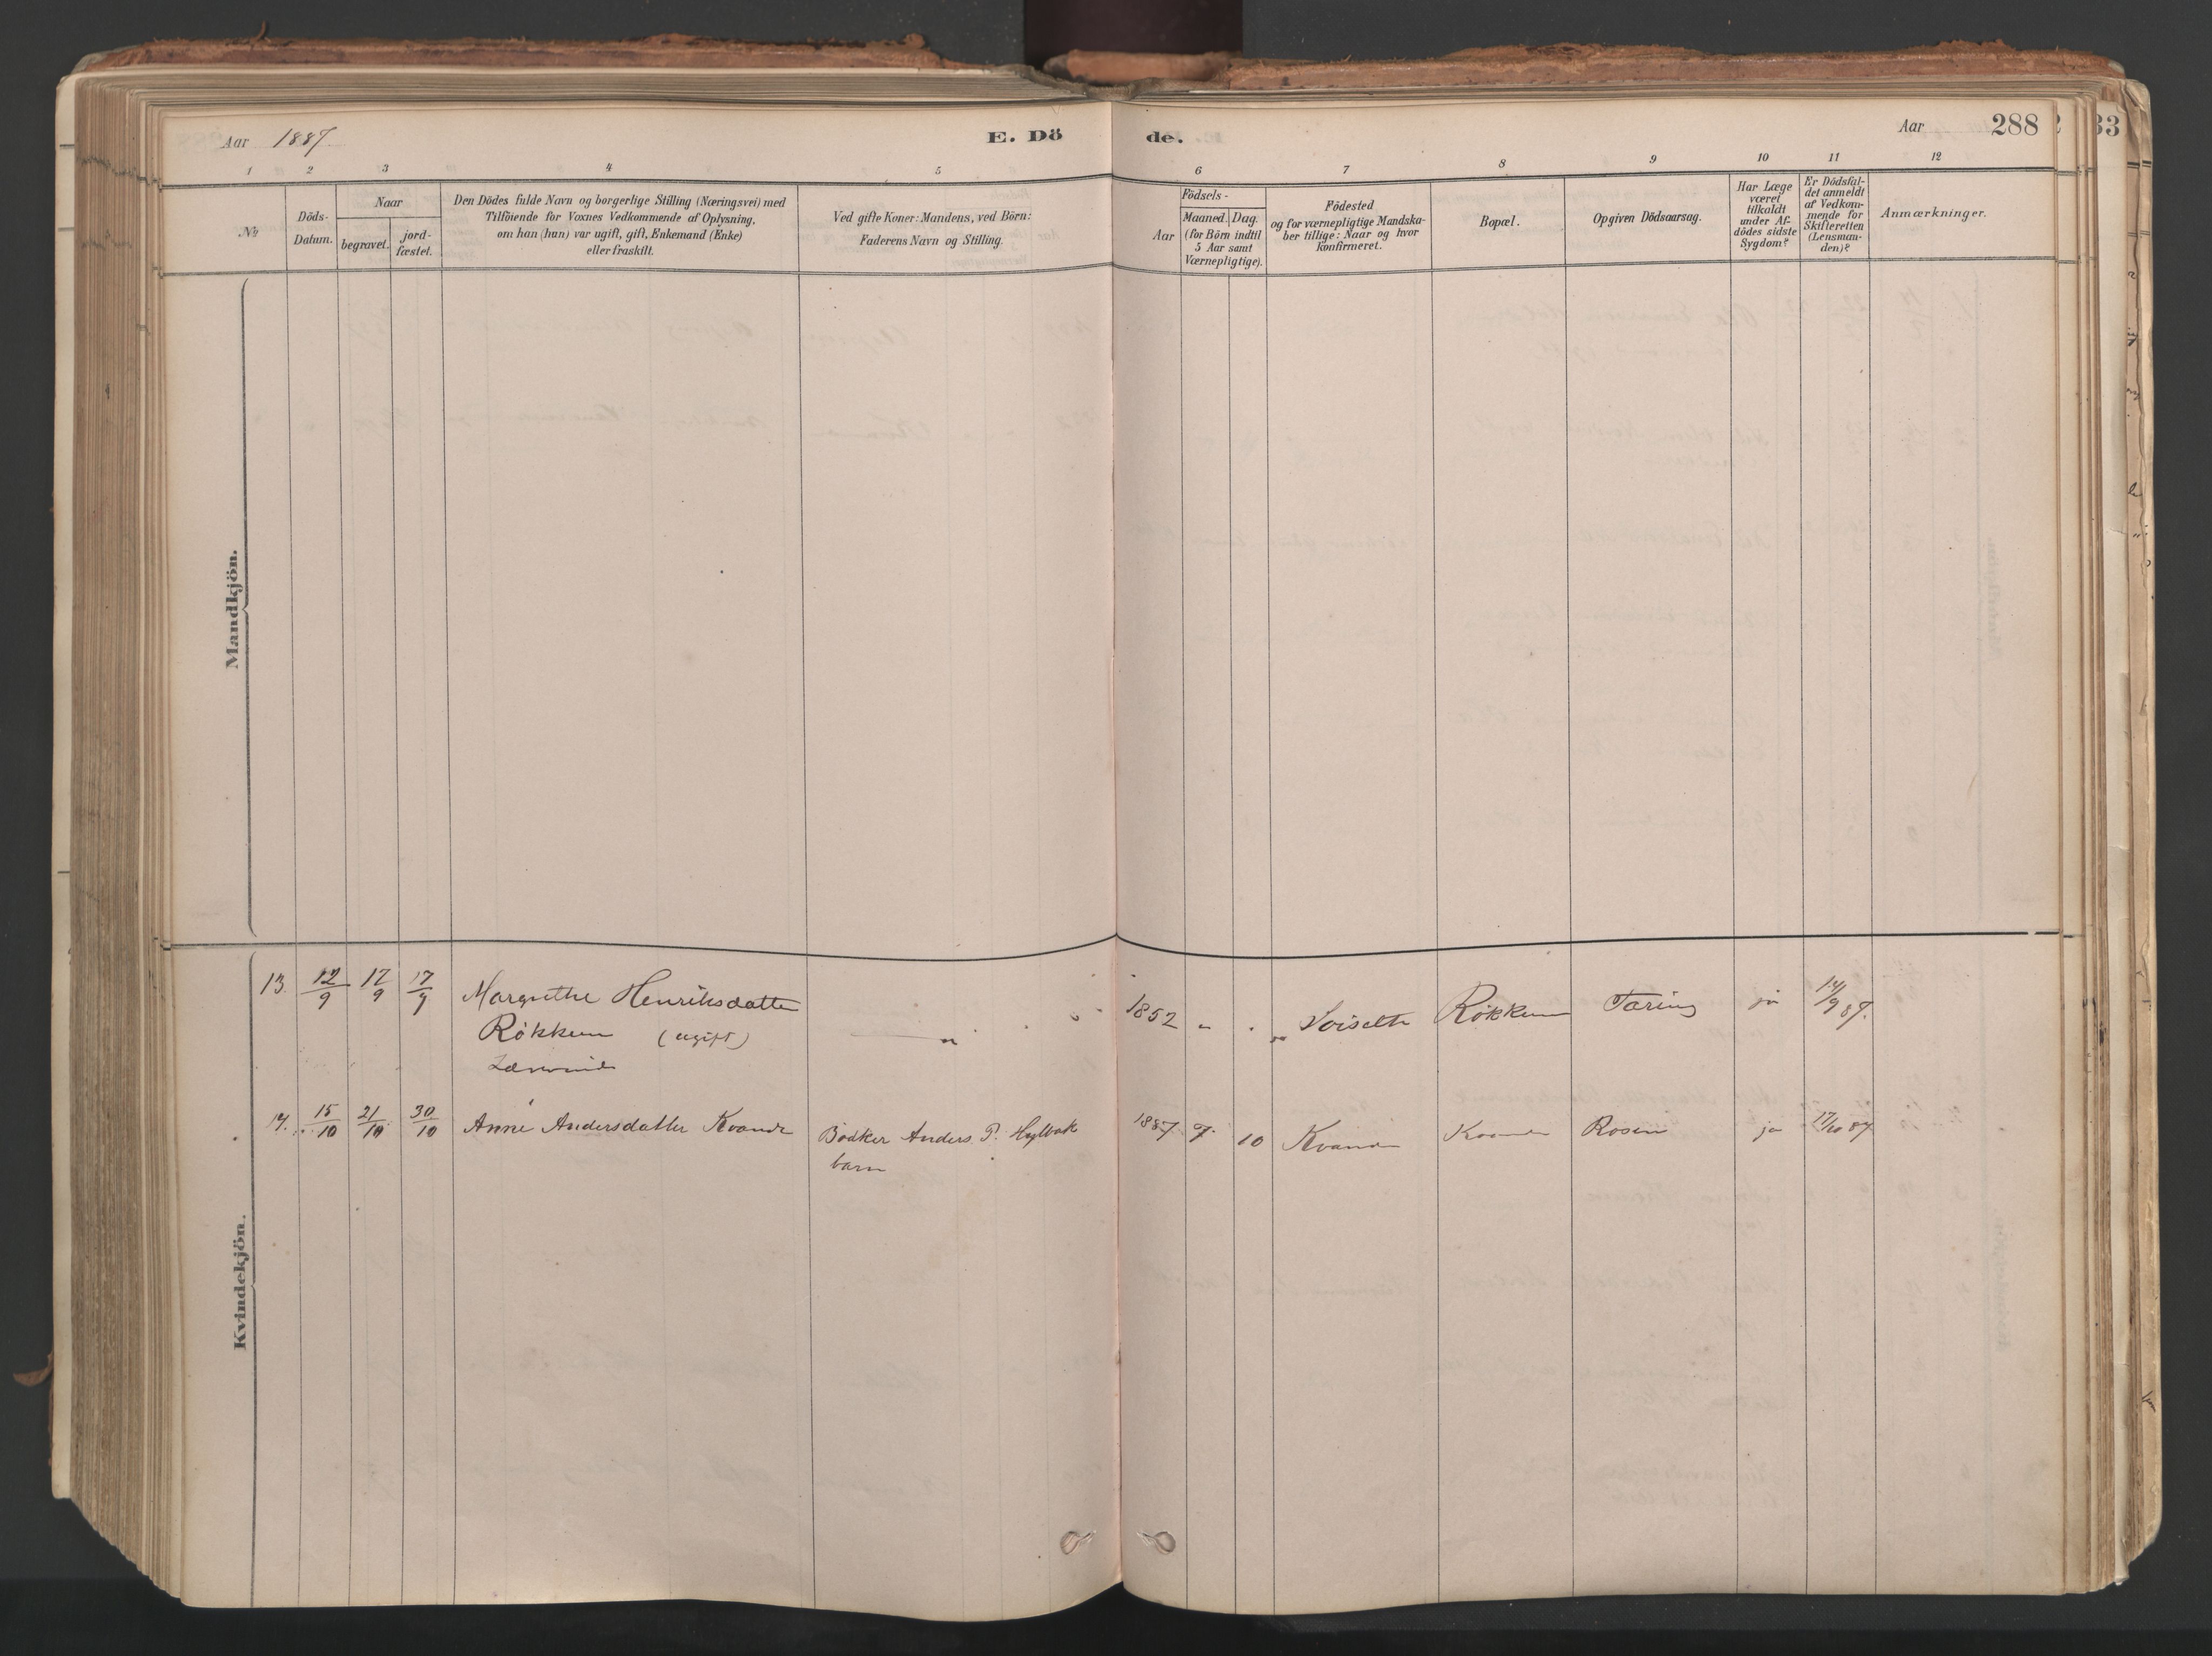 Aar 1887.
E. Dö
de.
Aar
288
33
1 2 3 4 5 6 7 8 9 10 11 12
No
Döds-Datum.
Naar
begravet.
jord-fæstet.
Den Dödes fulde Navn og borgerlige Stilling (Næringsvei) med
Tilföiende for Voxnes Vedkommende af Oplysning,
om han (hun) var ugift, gift, Enkemand (Enke)
eller fraskilt.
Ved gifte Koner: Mandens, ved Börn:
Faderens Navn og Stilling.
Födsels-
Aar
Maaned.
Dag.
(for Börn indtil
5 Aar samt
Værnepligtige).
Födested
og for værnepligtige Mandska-
ber tillige: Naar og hvor
konfirmeret.
Bopæl.
Opgiven Dödsaarsag.
Har Læge
været
tilkaldt
under Af-
dödes sidste
Sygdom?
Er Dödsfal-
det anmeldt
af Vedkom-
mende for
Skifteretten
(Lensman-
den)?
Anmærkninger.
Mandkjön.
Kvindekjön.
13. 12/9 17/9 17/9 Margrethe Henriksdatter 1852 " " Rökkum Tæring ja 14/9 87.
Rökkum (ugift) "
14. 15/10 21/10 30/10 Anne Andersdatter Kvande Bödker Anders P. Hylbak 1887 7 10 Kvande Kvande Rosen ja 17/10 87
barn